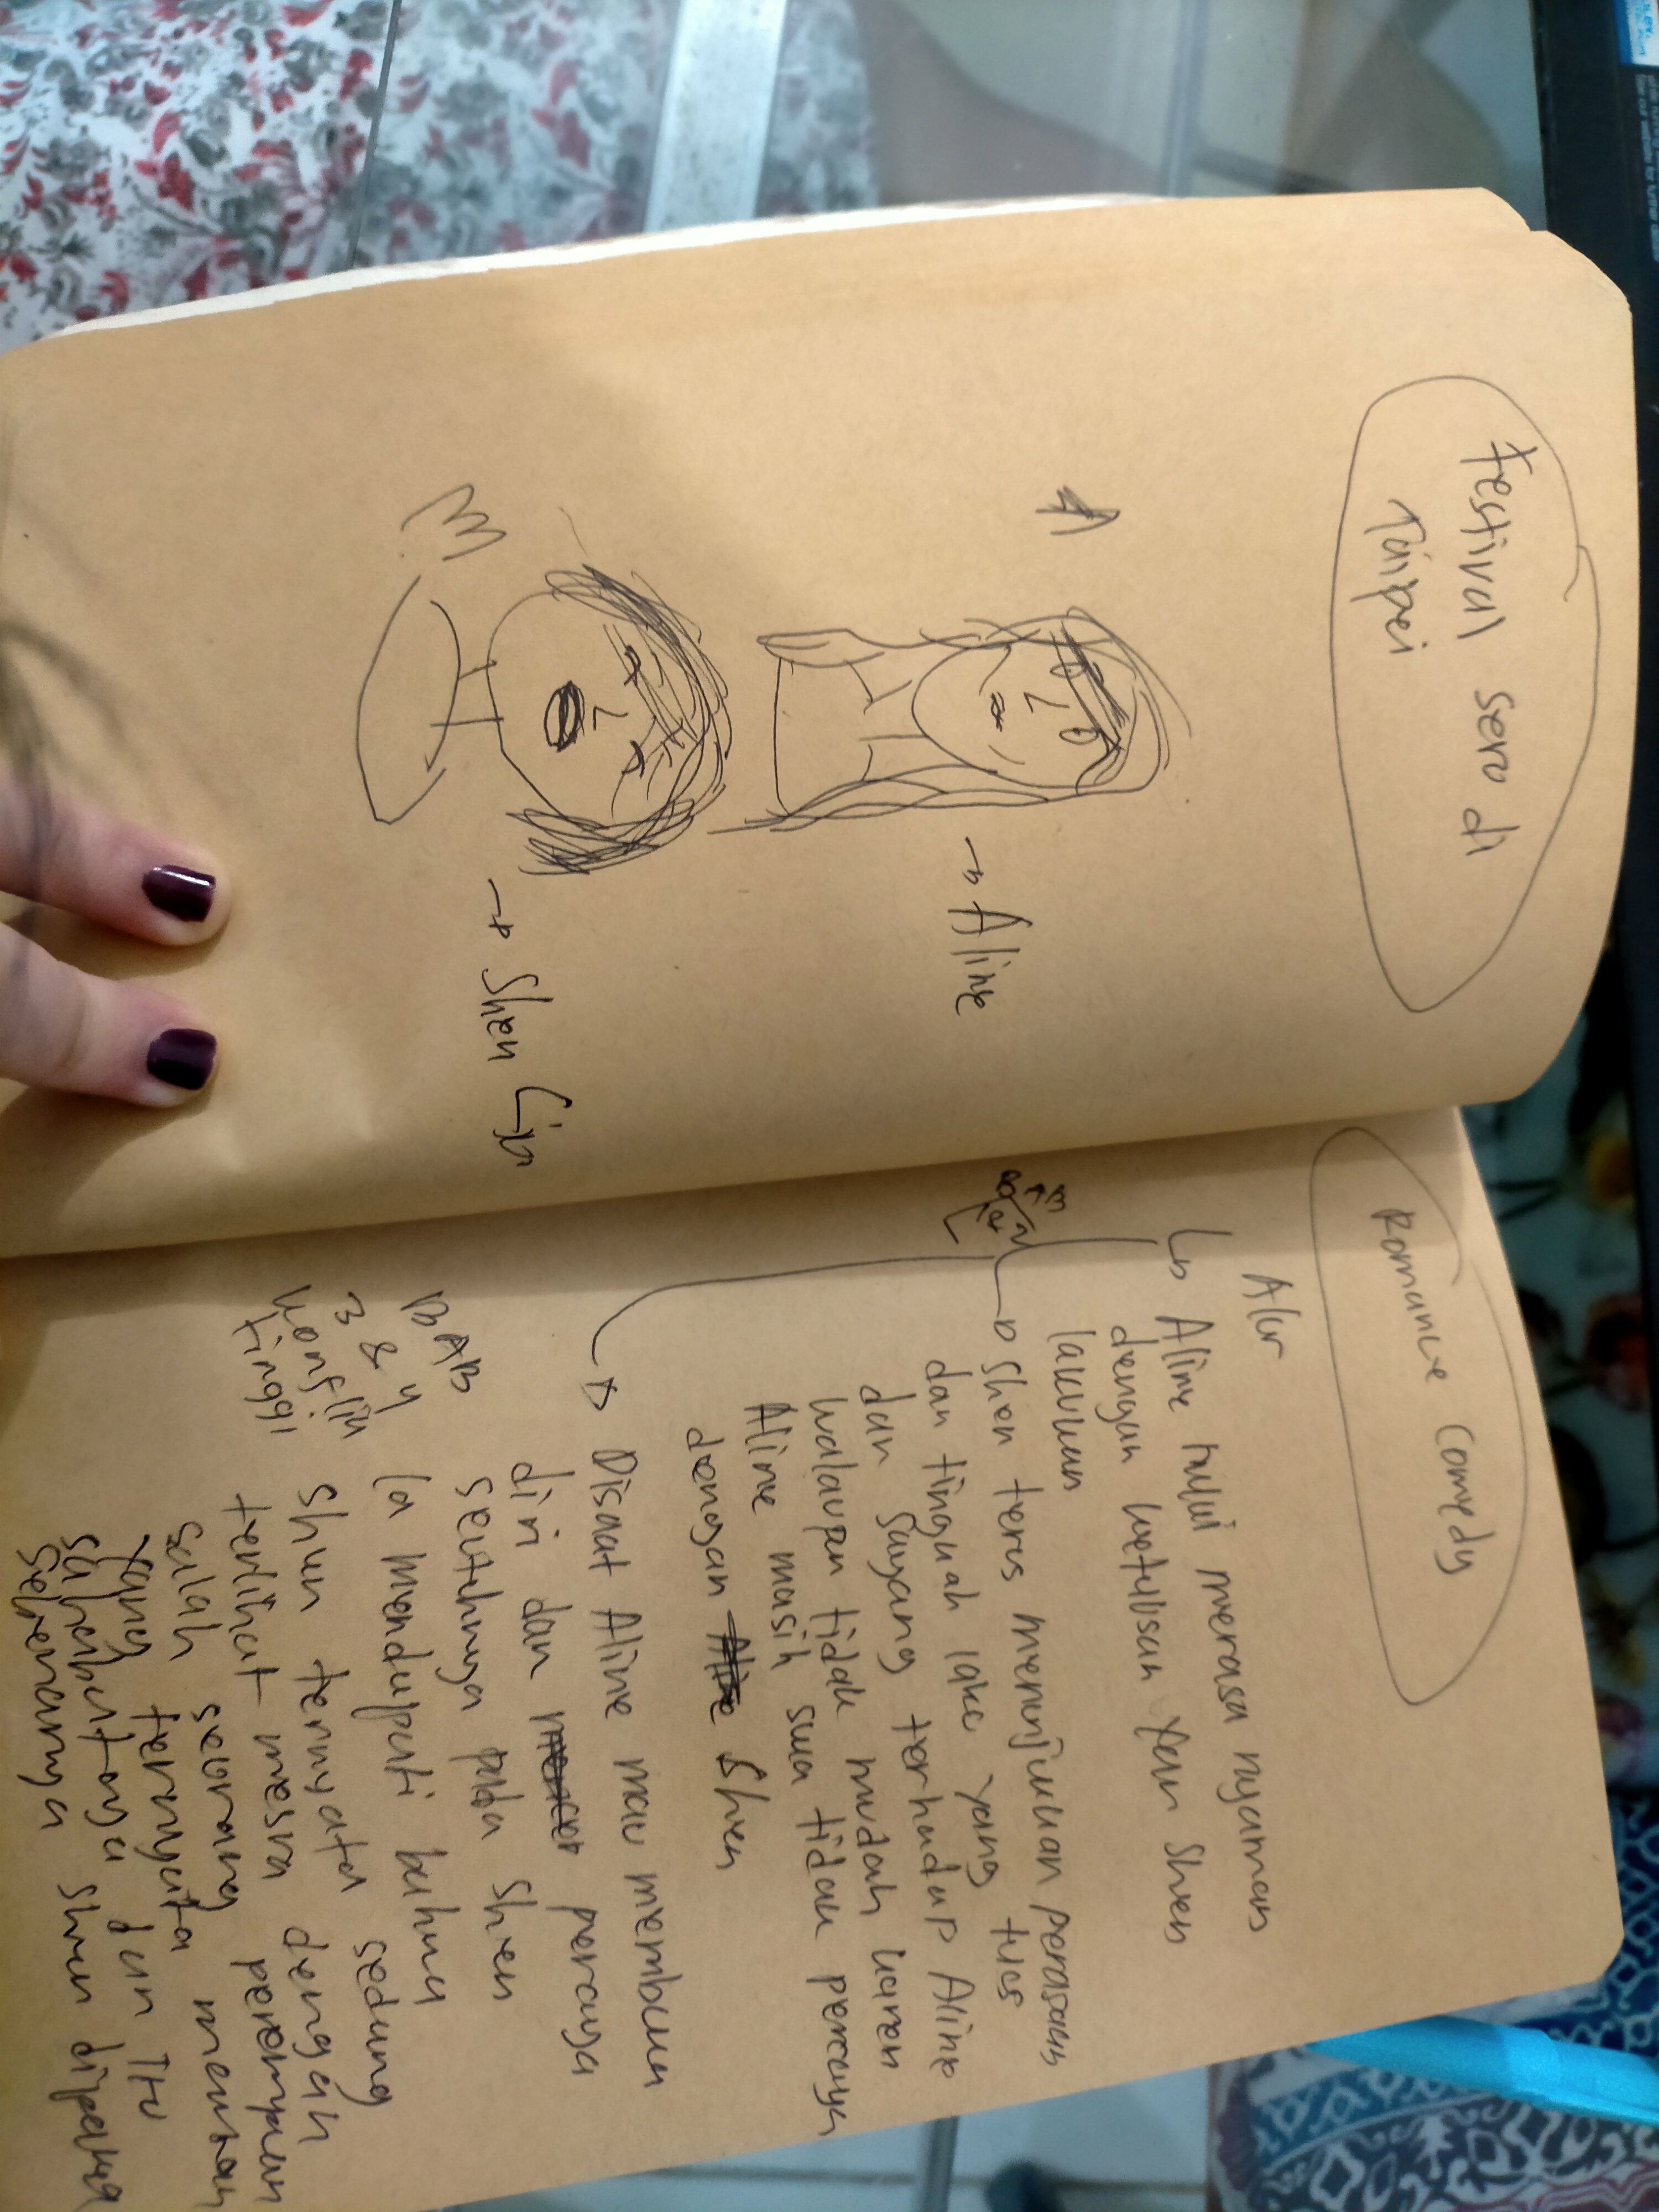 Festival seru di
Taipei
A
→ Aline
→ Shen Lin
Romance Comedy
Alur
→ Aline mulai merasa nyaman
dengan ketulusan yan Shen
lakukan
BAB
1 & 2
→ Shen terus menunjukan perasaan
dan tingkah lake yang tulus
dan sayang terhadap Aline
walaupun tidak mudah karen
Aline masih sma tidak percaya
dengan Shen
→ Disaat Aline mau membuka
diri dan percaya
seutuhnya pada Shen
la mendapati bahwa
BAB
3 & 4
konflik
tinggi
Shen ternyata sedang
terlihat mesra dengan
salah seorang perempuan
yang ternyata mantan
sahabatnya dan
sebenarnya Shen dipaksa